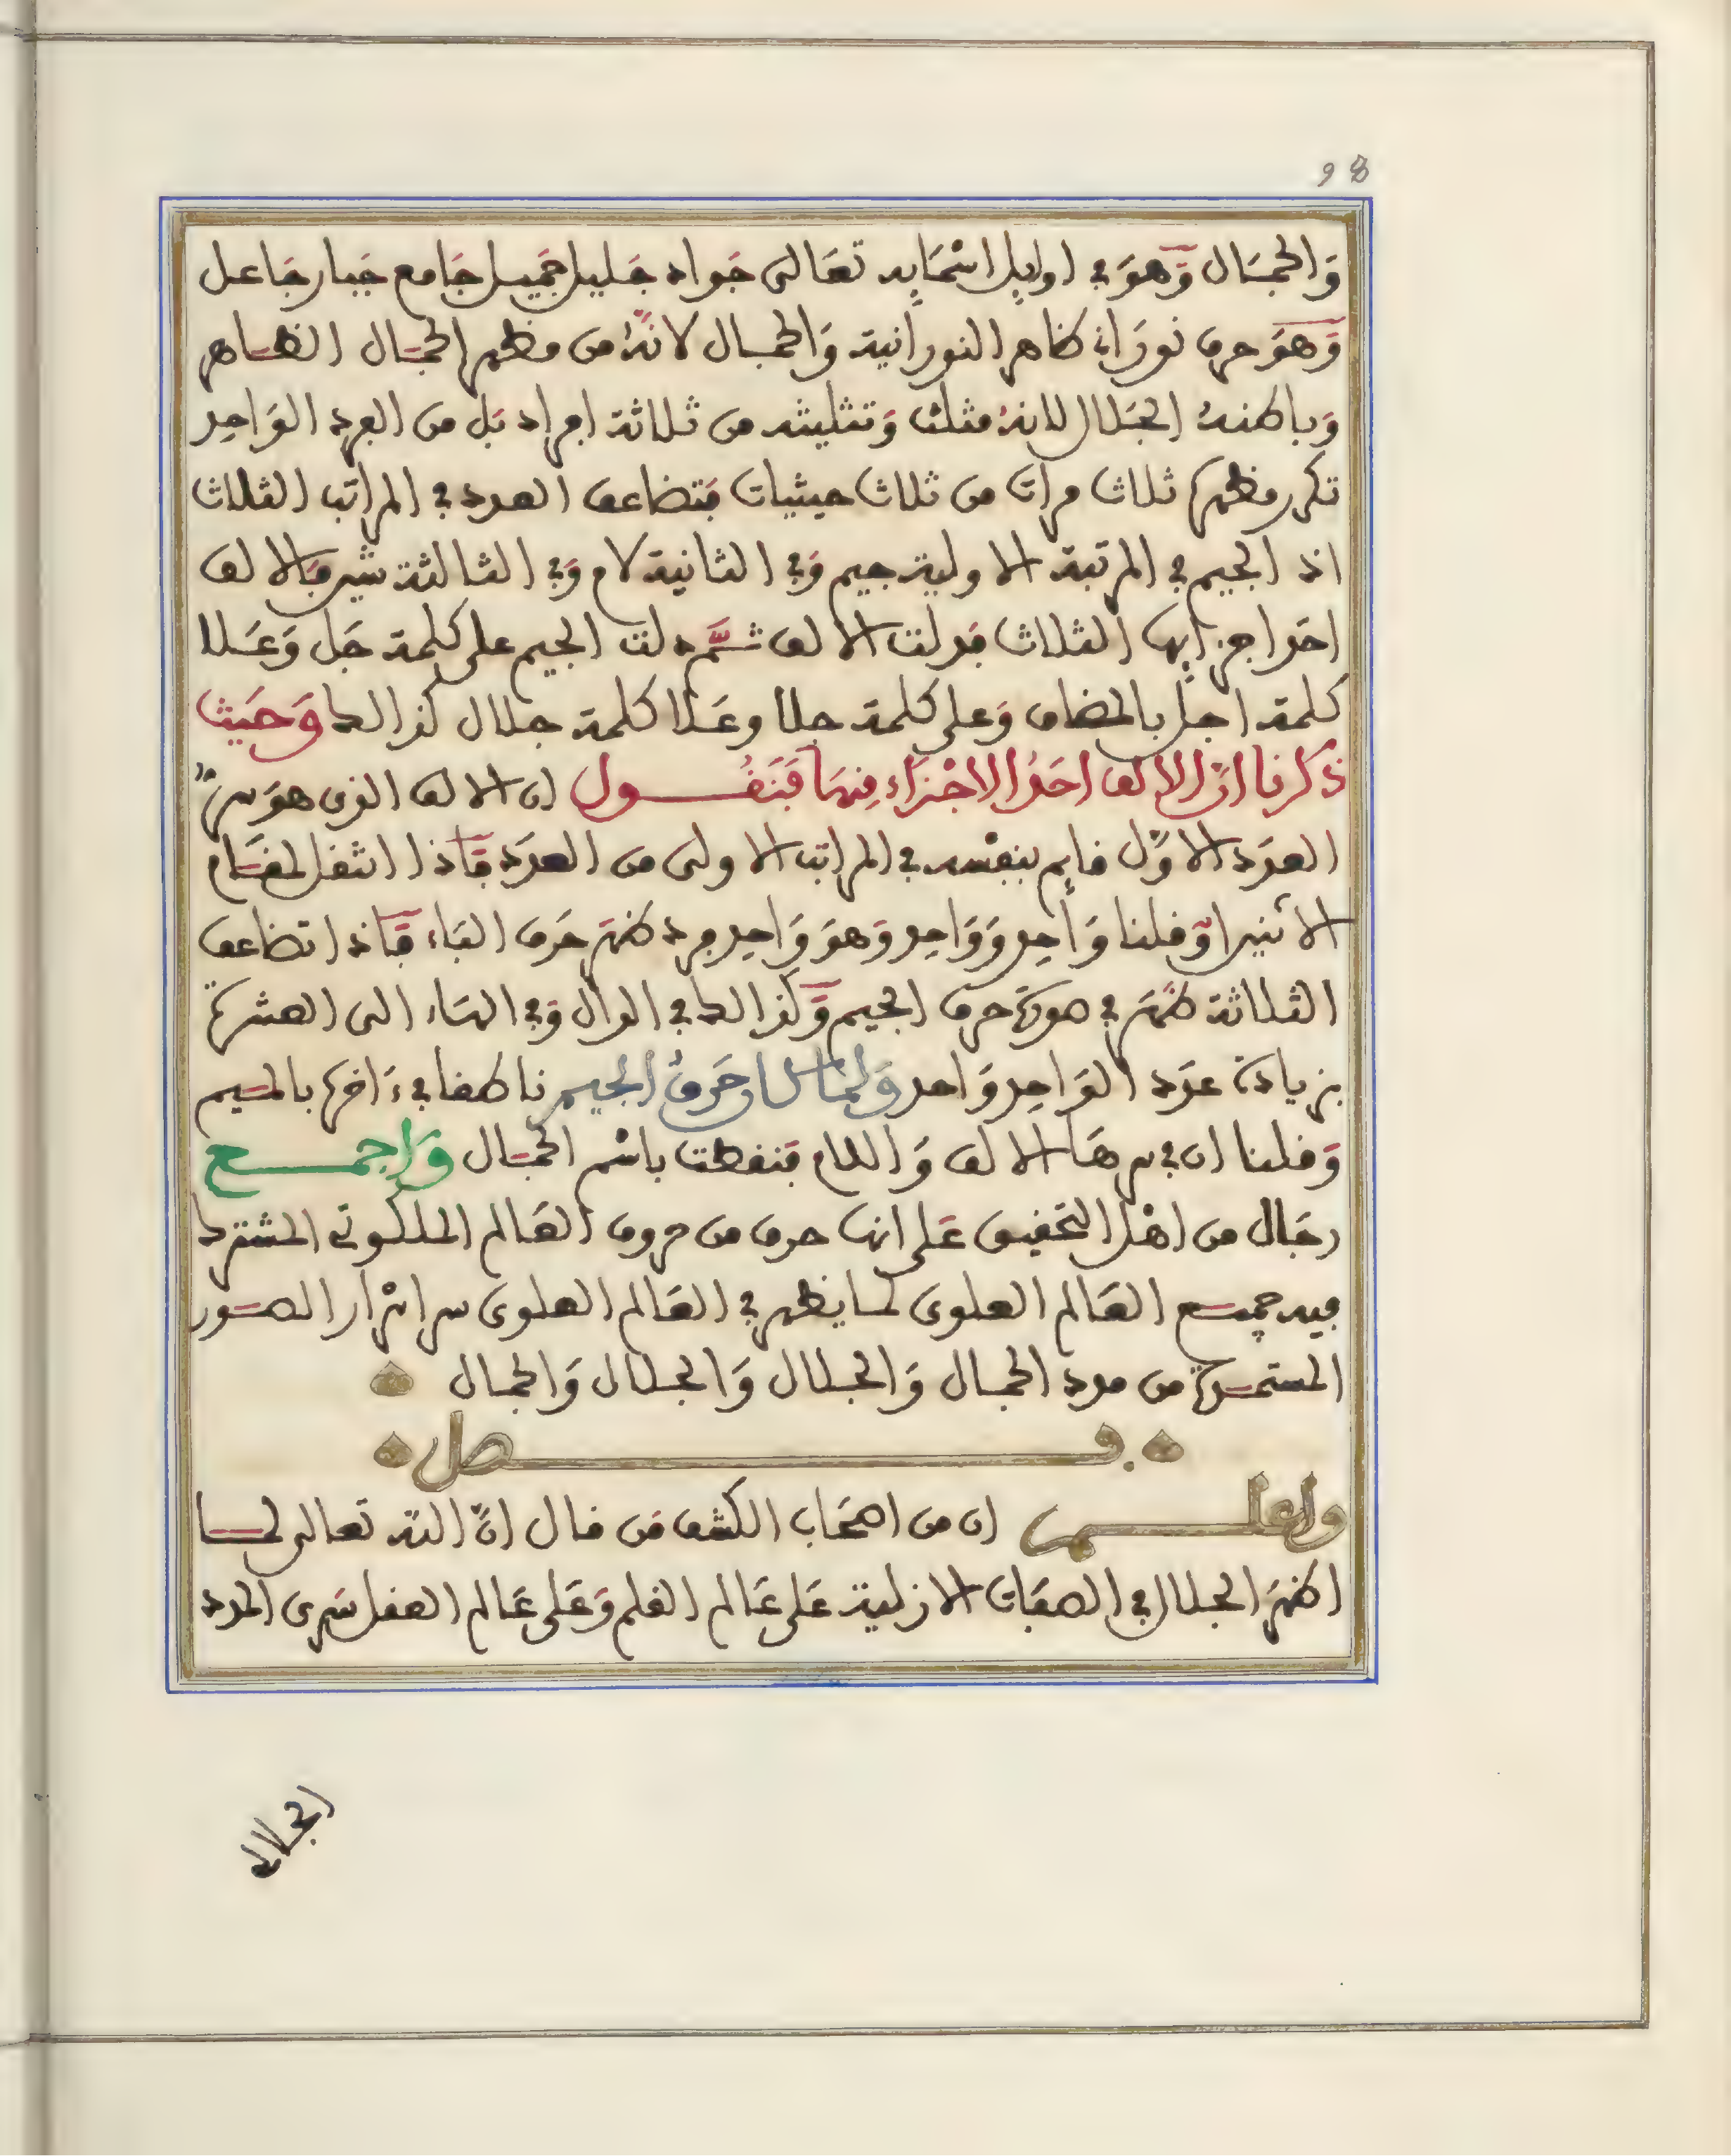 98
وَالجمَال وَهوَ في اوايِل اسْمَايِه تعَالى جَواد جَليل جَميل جَامع جَبار جَاعل
وَهوَ حرف نورَاني ظاهر النورانية وَالجمال لانهُ من مظهر الجمَال الظاهر
وَباطنهُ الجَلال لانهُ مثلث وَتثليثه من ثلاثة افراد بَل من الفرد الوَاحِد
تكرر مظهره ثلاث مرات من ثلاث حيثيات فتضاعف العدد في المراتب الثلاث
اذ الجيم في المرتبة الاولية جيم وَفي الثانية لام وَفي الثالثة شين فالالف
احَد اجزايِها الثلاث فدلت الالف ثمَّ دلت الجيم على كلمة جَل وَعَلا
كلمة اجل بالمضاف وَعلى كلمة جلا وعَلا كلمة جلال كذالك وَحَيث
ذكرنا انَّ الالف احَدُ الاجْزَاء مِنهَا فَنَقُول ان الالف الذي هوَ سرُّ
العدَد الاوَّل قايِم بنفسه في المراتب الاولى من العدَد فَاذا انتقل لمقام
الاثنين وَقلنا وَاحِد وَوَاحِد وَهوَ وَاحِد فرد ظهَر حَرف البَاء فَاذا تضاعف
الثلاثة ظهَر في صورة حرف الجيم وَكذالك في الدال وَفي الهَاء الى العشرة
بزيادة عدَد الوَاحِد وَاحد وَلما كان حَرفُ الجيم ناطقا في ءَاخره بالميم
وَقلنا ان في سرهَا الالف وَاللام فنطقت باسْم الجمال وَاجمع
رجَال من اهْل التحقيق عَلى انها حرف من حروف العَالم الملكوتي المشترك
فيه جميع العَالم العلوي لما يظهر في العَالم العلوي سر اسْرار الصور
المستمدة من مدد الجمال وَالجلال وَالجلال وَالجمال
فصل
واعلم ان من اصحَاب الكشف مَن قال انَّ الله تعالى لما
اظهَر الجلال في الصفَات الازلية عَلى عَالم القلم وَعَلى عَالم العقل سَرى المدد
الجلال